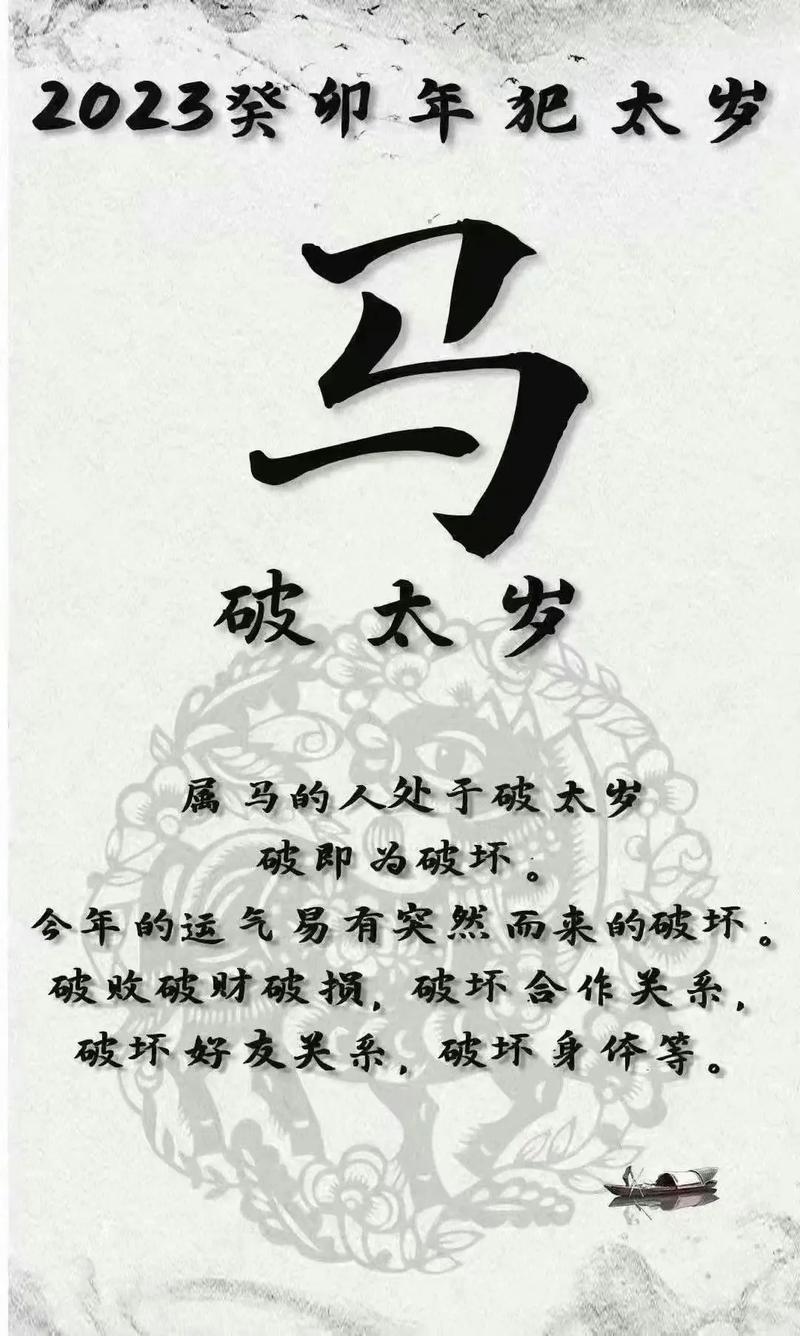 2023癸卯年犯太岁
马
破太岁
属马的人处于破太岁
破即为破坏。
今年的运气易有突然而来的破坏。
破败破财破损，破坏合作关系，
破坏好友关系，破坏身体等。